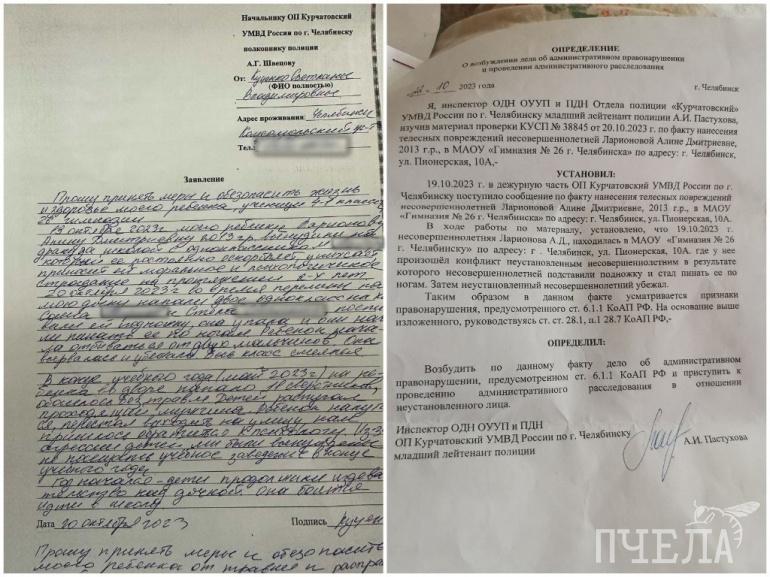 Начальнику ОП Курчатовский
УМВД России по г. Челябинску
полковнику полиции
А.Г. Швецову
От:
Владимировны
(ФИО полностью)
Адрес проживания: г. Челябинск
Комсомольский пр-т
Тел.:
Заявление
Прошу принять меры и обезопасить жизнь
и здоровье моего ребенка, ученицы 4-1 класса
26 гимназии
октября 2023г. моего ребенка Ларионову
Алину Дмитриевну 2013 г.р.
школы с одноклассником
ее постоянно оскорбляет, унижает
приносит ей моральное и психологическое
страдание на протяжении
20 октября 2023 г. во время перемены на
мою дочку напали двое одноклассника
и Стёпа
ей подножку она упала и они
пинать ее по ногам. Ребенок
отбиваться от двух мальчиков. Она
вырвалась и убежала. Весь класс смеялся
В конце учебного года (май 2023г) на ре-
бенка во дворе напало 11 сверстников,
обошлось без травм. Детей распугал
проходящий мужчина. Ребенок
перестал выходить на улицу, нам
пришлось обратиться к
детей, мы были вынуждены
не посещать учебное заведение в конце
учебного года.
Год начался - дети продолжили издева-
тельство над дочкой. Она боится
идти в школу
Дата 20 октября 2023 Подпись
Прошу принять меры и обезопасить
моего ребенка от травли и расправ
ОПРЕДЕЛЕНИЕ
О возбуждении дела об административном правонарушении
и проведении административного расследования
10 2023 года г. Челябинск
Я, инспектор ОДН ОУУП и ПДН Отдела полиции «Курчатовский»
УМВД России по г. Челябинску младший лейтенант полиции А.И. Пастухова,
изучив материал проверки КУСП № 38845 от 20.10.2023 г. по факту нанесения
телесных повреждений несовершеннолетней Ларионовой Алине Дмитриевне,
2013 г.р., в МАОУ «Гимназия № 26 г. Челябинска» по адресу: г. Челябинск,
ул. Пионерская, 10А,-
УСТАНОВИЛ:
19.10.2023 г. в дежурную часть ОП Курчатовский УМВД России по г.
Челябинску поступило сообщение по факту нанесения телесных повреждений
несовершеннолетней Ларионовой Алине Дмитриевне, 2013 г.р., в МАОУ
«Гимназия № 26 г. Челябинска» по адресу: г. Челябинск, ул. Пионерская, 10А.
В ходе работы по материалу, установлено, что 19.10.2023 г.
несовершеннолетняя Ларионова А.Д., находилась в МАОУ «Гимназия № 26
г. Челябинска» по адресу: г. Челябинск, ул. Пионерская, 10А. где у нее
произошёл конфликт неустановленным несовершеннолетним в результате
которого несовершеннолетней подставили подножку и стал пинать ее по
ногам. Затем неустановленный несовершеннолетний убежал.
Таким образом в данном факте усматривается признаки
правонарушения, предусмотренного ст. 6.1.1 КоАП РФ. На основание выше
изложенного, руководствуясь ст. ст. 28.1, п.1 28.7 КоАП РФ,-
ОПРЕДЕЛИЛ:
Возбудить по данному факту дело об административном
правонарушении, предусмотренном ст. 6.1.1 КоАП РФ и приступить к
проведению административного расследования в отношении
неустановленного лица.
Инспектор ОДН ОУУП и ПДН
ОП Курчатовский УМВД России по г. Челябинску
младший лейтенант полиции
А.И. Пастухова
ПЧЕЛА